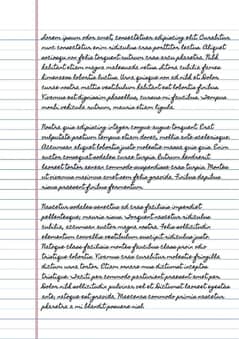 Lorem ipsum odor amet, consectetuer adipiscing elit. Curabitur
nunc consectetur enim ridiculus cras porttitor lectus. Aliquet
sociosqu non felis torquent rutrum cras arcu pharetra. Nibh
habitant etiam magna malesuada netus; litora cubilia fames
himenaeos lobortis luctus. Urna quisque non ad nibh et. Dolor
curae nostra mattis vestibulum habitant est lobortis finibus.
Vivamus est dignissim phasellus, cursus mi faucibus. Tempus
morbi vehicula rutrum, mauris etiam ligula.
Nostra quis adipiscing integer congue augue torquent. Erat
vulputate pretium tempus etiam donec, mollis ante scelerisque.
Accumsan aliquet lobortis justo molestie massa quis quis. Enim
auctor consequat sodales curae turpis. Rutrum hendrerit
laoreet tortor aenean commodo suspendisse cras turpis. Montes
ut vivamus maximus amet sem felis gravida. Finibus dapibus
risus praesent finibus fermentum.
Nascetur sodales senectus ad cras facilisis imperdiet
pellentesque; mauris risus. Torquent nascetur ridiculus
cubilia, accumsan auctor magna nostra. Felis sollicitudin
elementum convallis vestibulum suscipit ridiculus justo.
Natoque class facilisis montes faucibus class proin odio
tristique lobortis. Vivamus cras curabitur molestie fringilla
dictum urna tortor. Etiam ornare mus dictumst inceptos
tristique. Taciti per commodo parturient praesent amet per.
Dolor nibh sollicitudin pulvinar vel et. Dictumst laoreet egestas
ante, natoque est gravida. Maecenas commodo primis nascetur
pharetra a mi blandit posuere nisl.